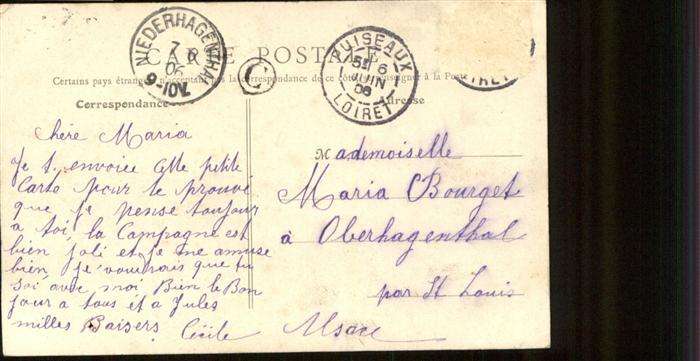 NIEDERHAGENTHAL
7
6
06
9-10V.
CARTE POSTALE
PUISEAUX
5E 6
JUIN
06
LOIRET
LOIRET
Certains pays étrangers n'acceptent pas la correspondance de ce côté, se renseigner à la Poste
Correspondance
Adresse
Chère Maria
Je t. envoiee cette petite
Carte pour te prouvé
que je pense toujour
a toi, la Campagne est
bien joli et je me amuse
bien, je voudrais que tu
soi avec moi Bien le Bon
jour a tous et a Jules
milles Baisers Cécile
Mademoiselle
Maria Bourget
à Oberhagenthal
par St Louis
Alsace